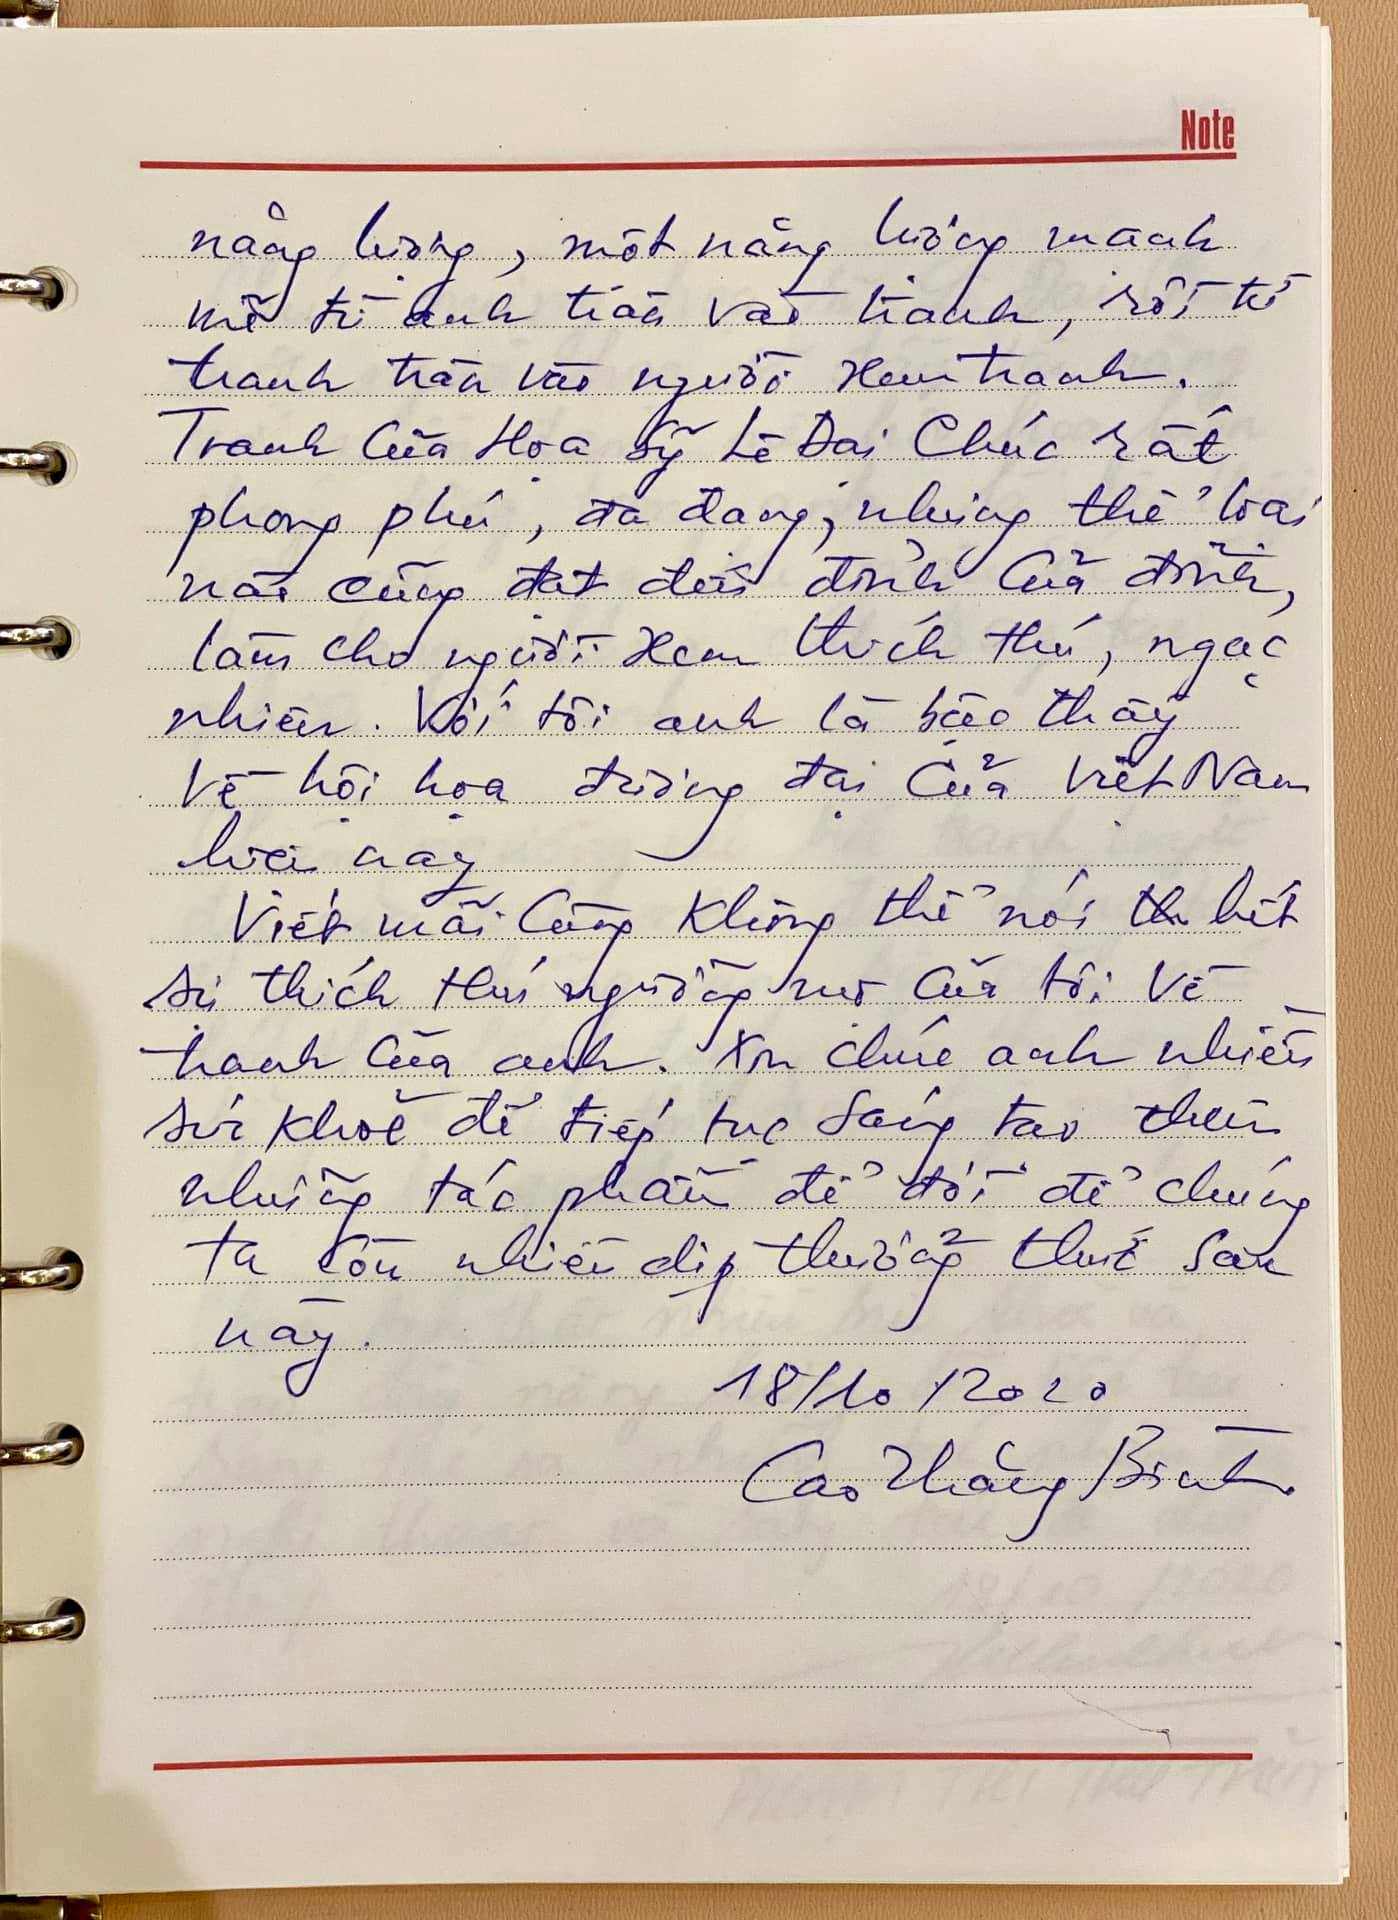 Note
năng lượng, một năng lượng mạnh
mẽ từ anh tràn vào tranh, rồi từ
tranh tràn vào người xem tranh.
Tranh của Họa sỹ Lê Đại Chúc rất
phong phú, đa dạng, nhưng thể loại
nào cũng đạt đến đỉnh của đỉnh,
làm cho người xem thích thú, ngạc
nhiên. Với tôi anh là bậc thầy
về hội họa đương đại của Việt Nam
hiện nay
Viết mãi cũng không thể nói hết
sự thích thú ngưỡng mộ của tôi về
tranh của anh. Xin chúc anh nhiều
sức khoẻ để tiếp tục sáng tạo thêm
những tác phẩm để đời để chúng
ta còn nhiều dịp thưởng thức sau
này.
18/10/2020
Cao Thắng Bình.